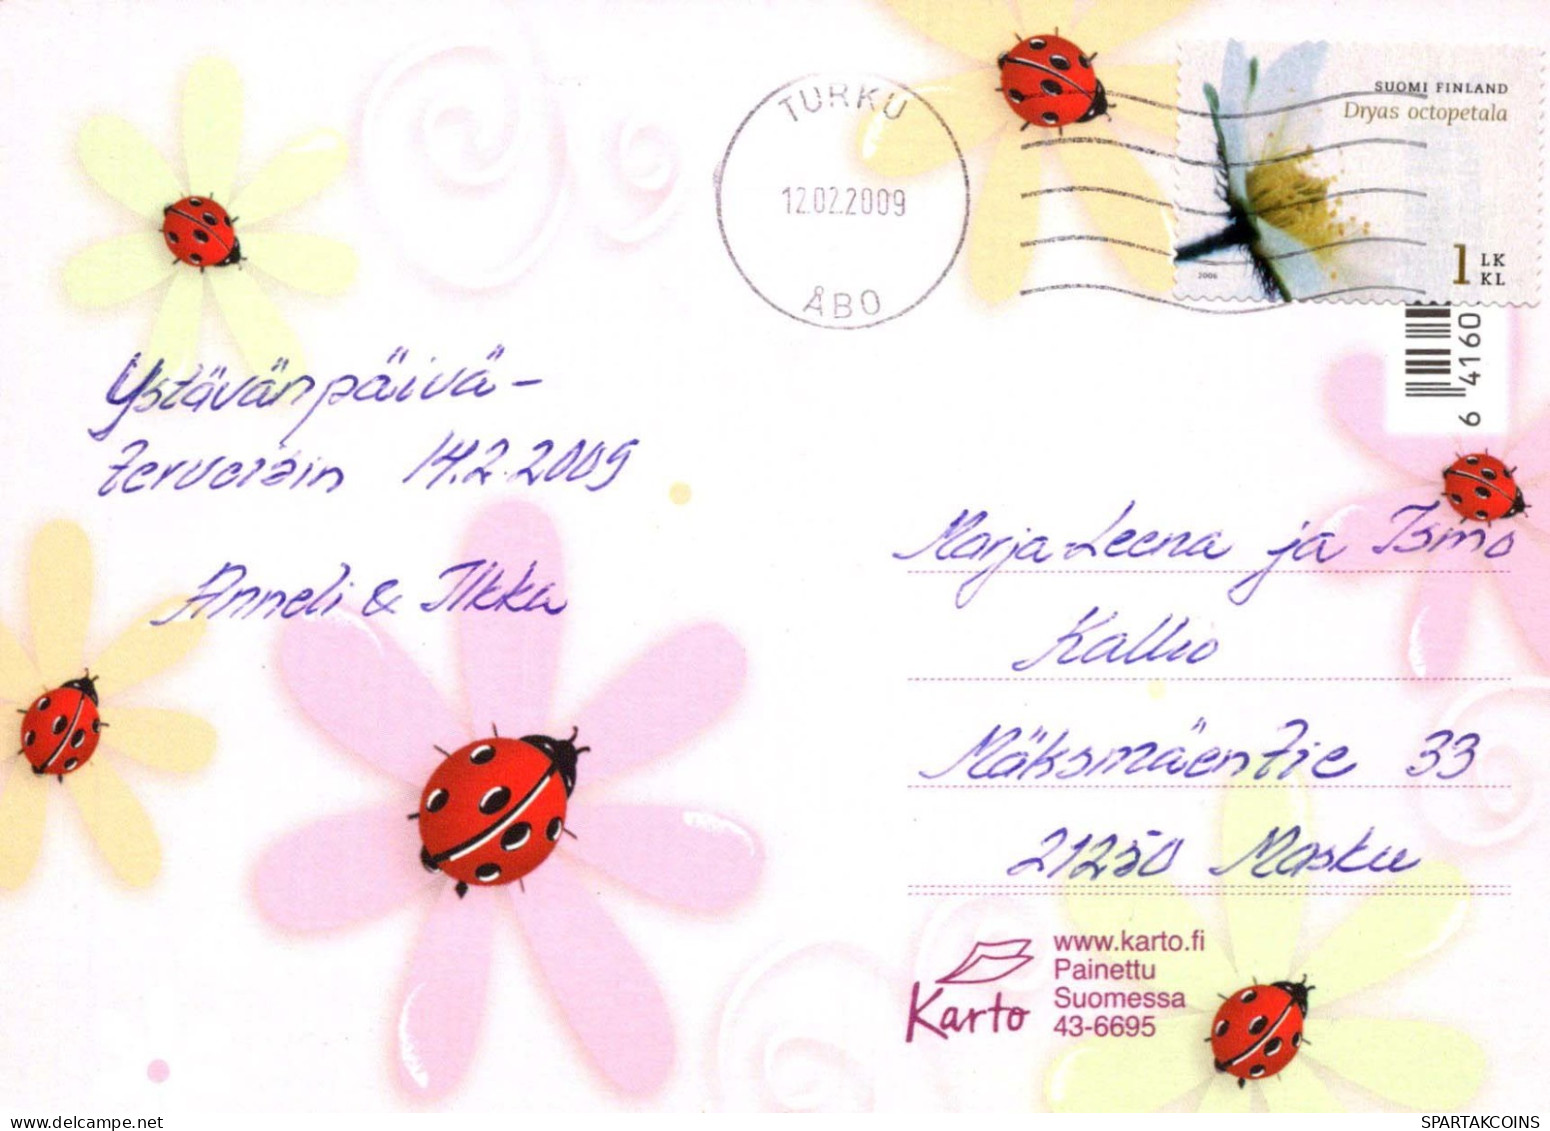 TURKU
12.02.2009
ÅBO
SUOMI FINLAND
Dryas octopetala
2006
1 LK
KL
6 4160
Ystävänpäivä-
terveisin 14.2.2009
Anneli & Ilkka
Marja-Leena ja Ismo
Kallio
Mäksmäentie 33
21250 Masku
Karto
www.karto.fi
Painettu
Suomessa
43-6695
delcampe.net
SPARTAKCOINS